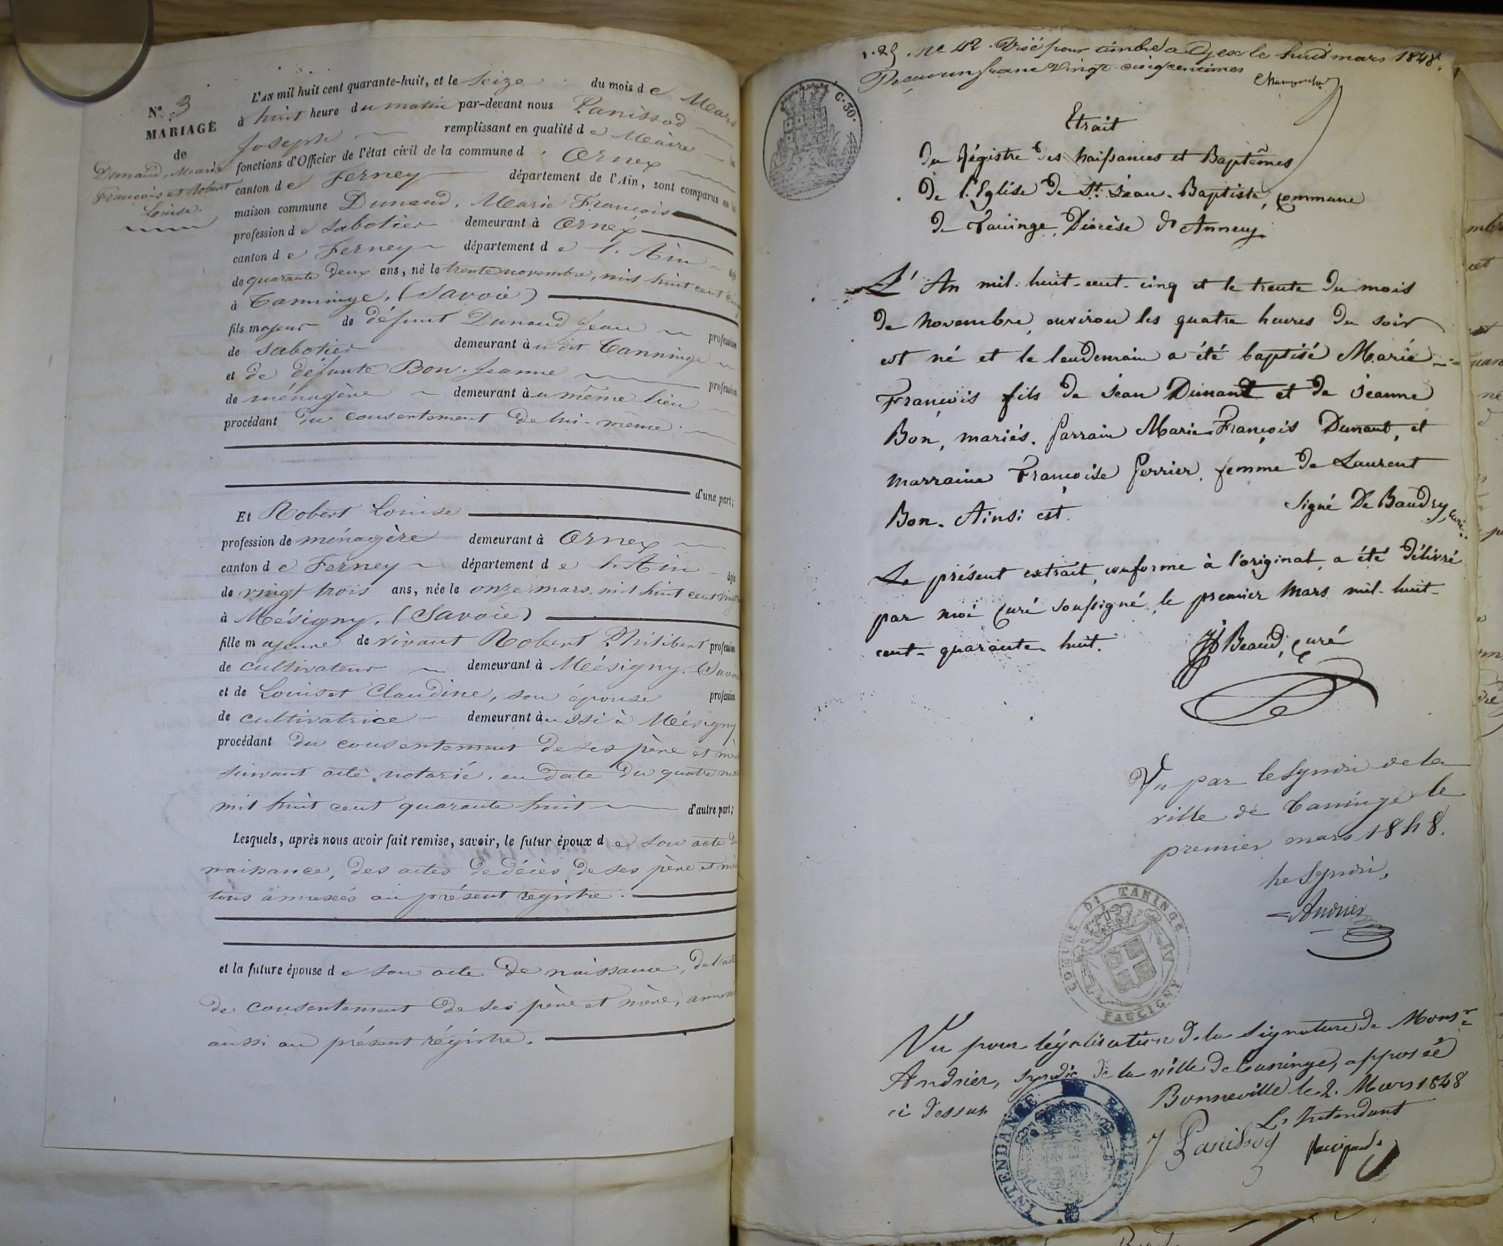 Nº 3
MARIAGE
de
Dunand, Marie
François et Robert
Louise.
L'AN mil huit cent quarante-huit, et le seize du mois de Mars
à huit heure du matin par-devant nous Panissod
Joseph remplissant en qualité de Maire
fonctions d'Officier de l'état civil de la commune d' Ornex
canton de Ferney département de l'Ain, sont comparus en la
maison commune Dunand, Marie François
profession de sabotier demeurant à Ornex
canton de Ferney département de l'Ain
de quarante deux ans, né le trente novembre, mil huit cent cinq
à Tanninge, (Savoie)
fils majeur de défunt Dunand Jean profession
de sabotier demeurant à dit Tanninge
et de défunte Bon Jeanne profession
de ménagère demeurant au même lieu
procédant du consentement de lui-même
d'une part;
Et Robert Louise
profession de ménagère demeurant à Ornex
canton de Ferney département de l'Ain âgée
de vingt trois ans, née le onze mars, mil huit cent vingt
à Mésigny, (Savoie)
fille majeure de vivant Robert Philibert profession
de cultivateur demeurant à Mésigny, (Savoie
et de Louiset Claudine, son épouse profession
de cultivatrice demeurant aussi à Mésigny
procédant du consentement de ses père et mère
suivant acte notarié, en date du quatre mars
mil huit cent quarante huit d'autre part;
Lesquels, après nous avoir fait remise, savoir, le futur époux de son acte de
naissance, des actes de décès de ses père et mère
tous annexés au présent registre.
et la future épouse de son acte de naissance, de l'acte
de consentement de ses père et mère, annexés
aussi au présent régistre.
Nº 42. Visé pour timbre a Gex le huit mars 1848.
Reçu un franc vingt-cinq centimes
C. 30.
Etrait
du Régistre des naissances et Baptêmes
de l'Eglise de St. Jean-Baptiste, commune
de Taninge, Diocèse d'Annecy
L'An mil-huit-cent-cinq et le trente du mois
de novembre, environ les quatre heures du soir
est né et le lendemain a été baptisé Marie-
François fils de Jean Dunant et de Jeanne
Bon, mariés. parrain Marie-François Dunant, et
marraine Françoise Perrier, femme de Laurent
Bon. Ainsi est. Signé De Baudry, curé.
Le présent extrait, conforme à l'original, a été délivré
par moi curé soussigné, le premier mars mil-huit-
cent-quarante-huit. Beaud, curé
Vu par le syndic de la
ville de Taninge le
premier mars 1848.
Le Syndic,
Andrier
COMUNE DI TANINGE
FAUCIGNY
Vu pour légalisation de la signature de Monsr
Andrier, syndic de la ville de Taninge, apposée
ci dessus Bonneville le 2. Mars 1848
L'Intendant
INTENDANCE